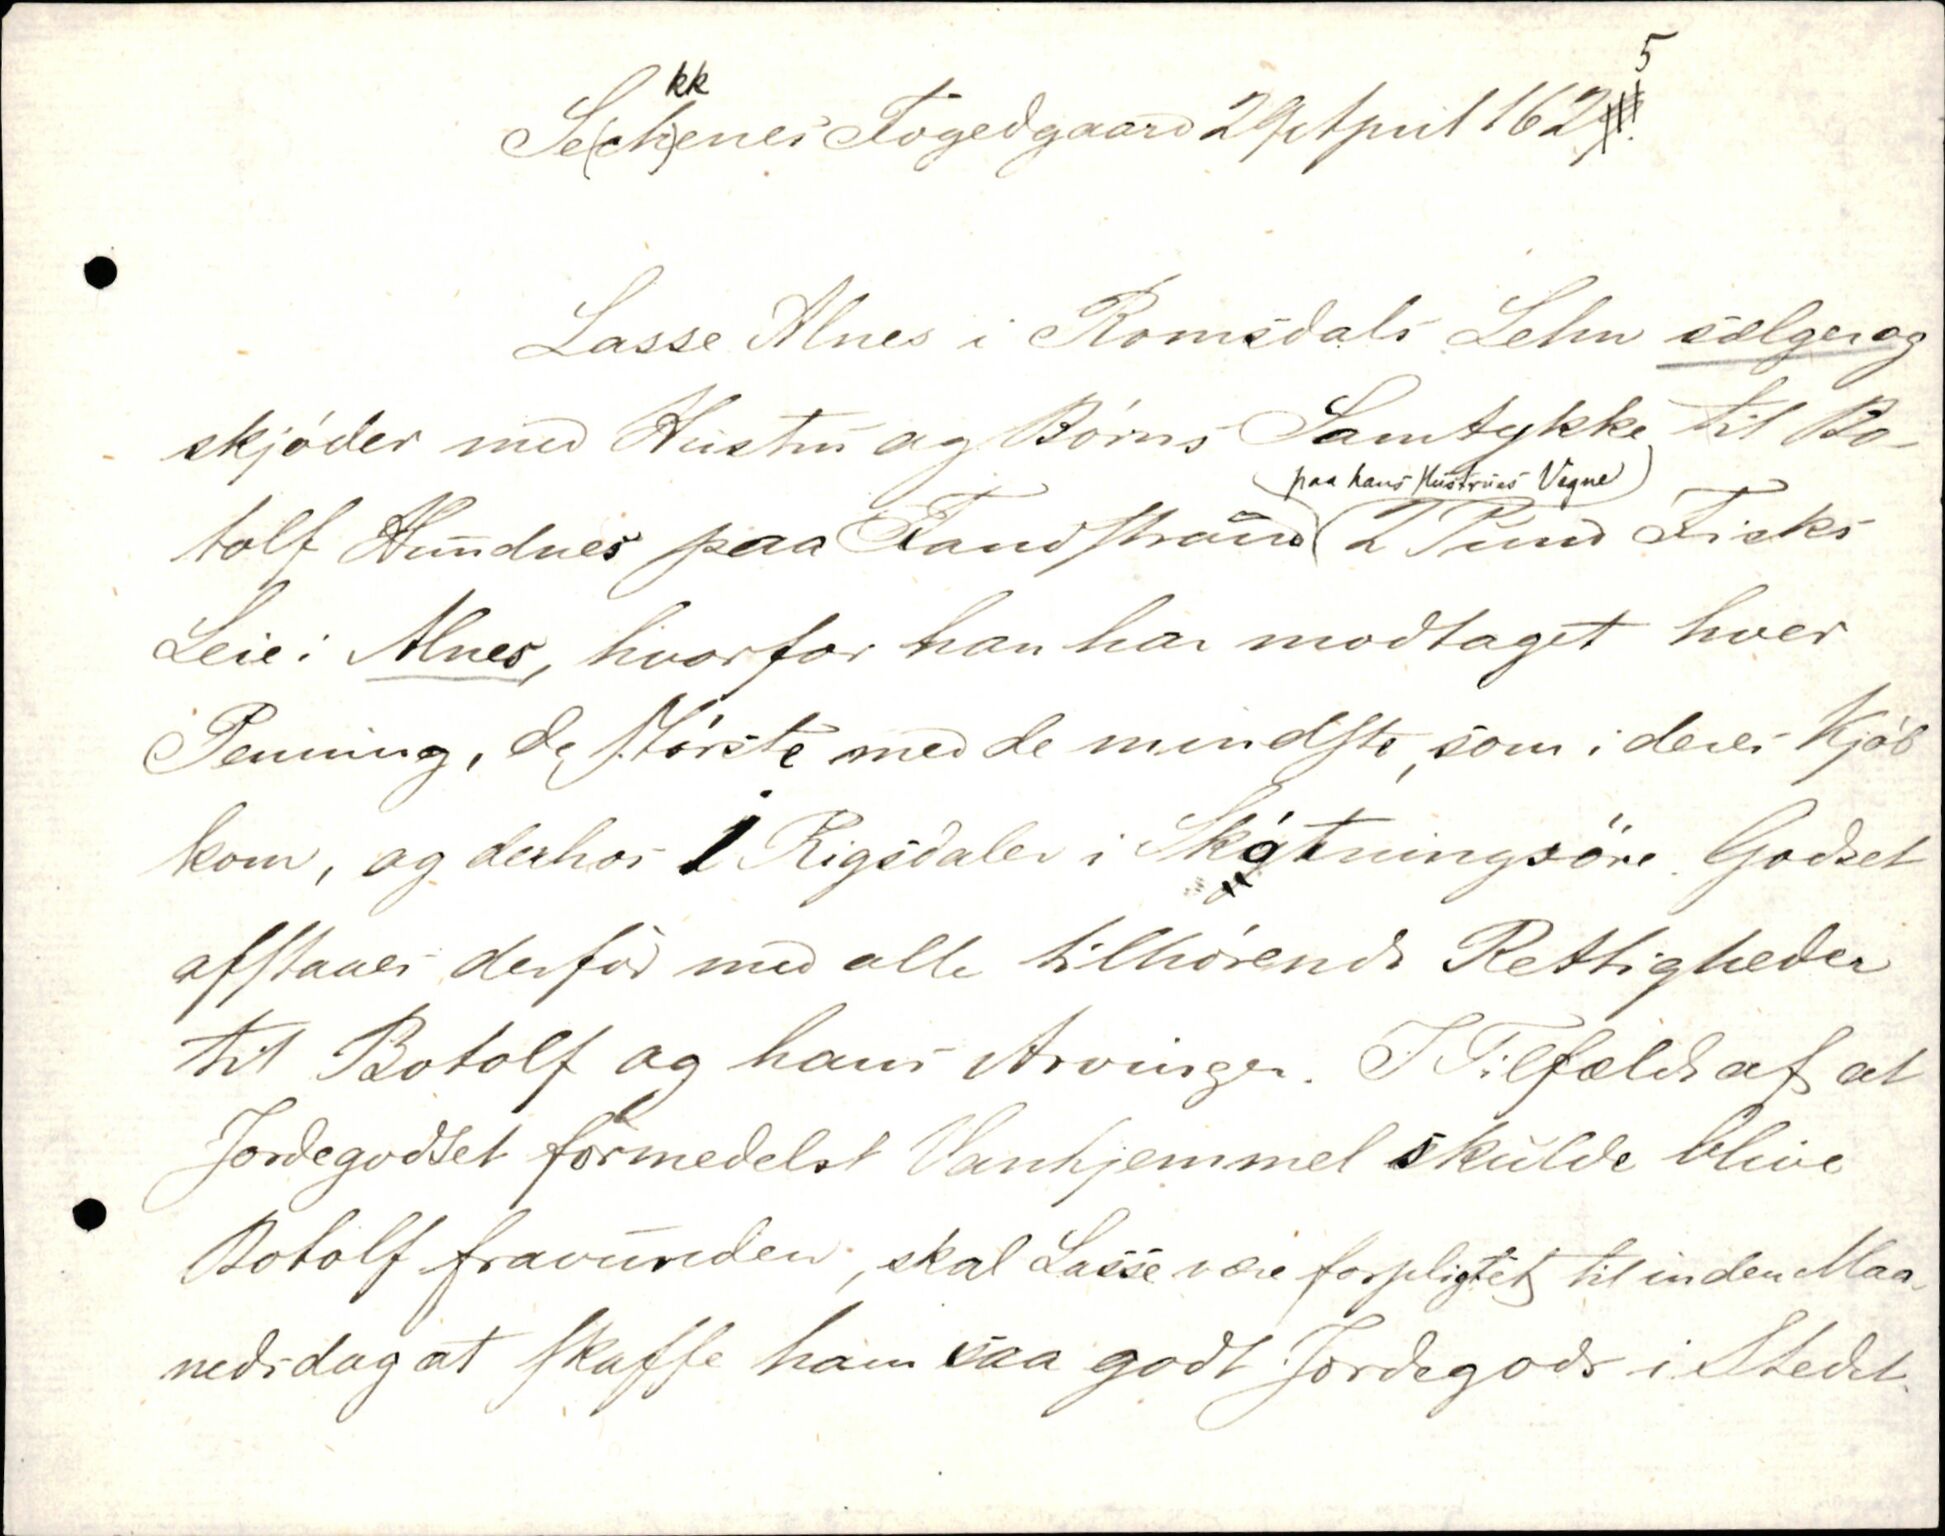 5
kk
Se(ch)enes Fogedgaard 29 April 162
Lasse Alnes i Romsdals Lehn sælger og
skjøder med Hustru og Børns Samtykke til Bo-
(paa hans Hustrues Vegne)
tolf Hundnes paa Tandstrand (2 Pund Fisks
Leie i Alnes, hvorfor han har modtaget hver
Penning, de störste med de mindste, som i deres Kjøb
kom, og derhos 1 Rigsdaler i Skøtningsöre. Godset
afstaaes derfor med alle tilhørende Rettigheder
til Botolf og hans Arvinger. I Tilfælde af at
Jordegodset formedelst Vanhjemmel skulde blive
Botolf fravunden, skal Lasse være forpligtet til inden Maa-
nedsdag at skaffe ham saa godt Jordegods i Stedet.